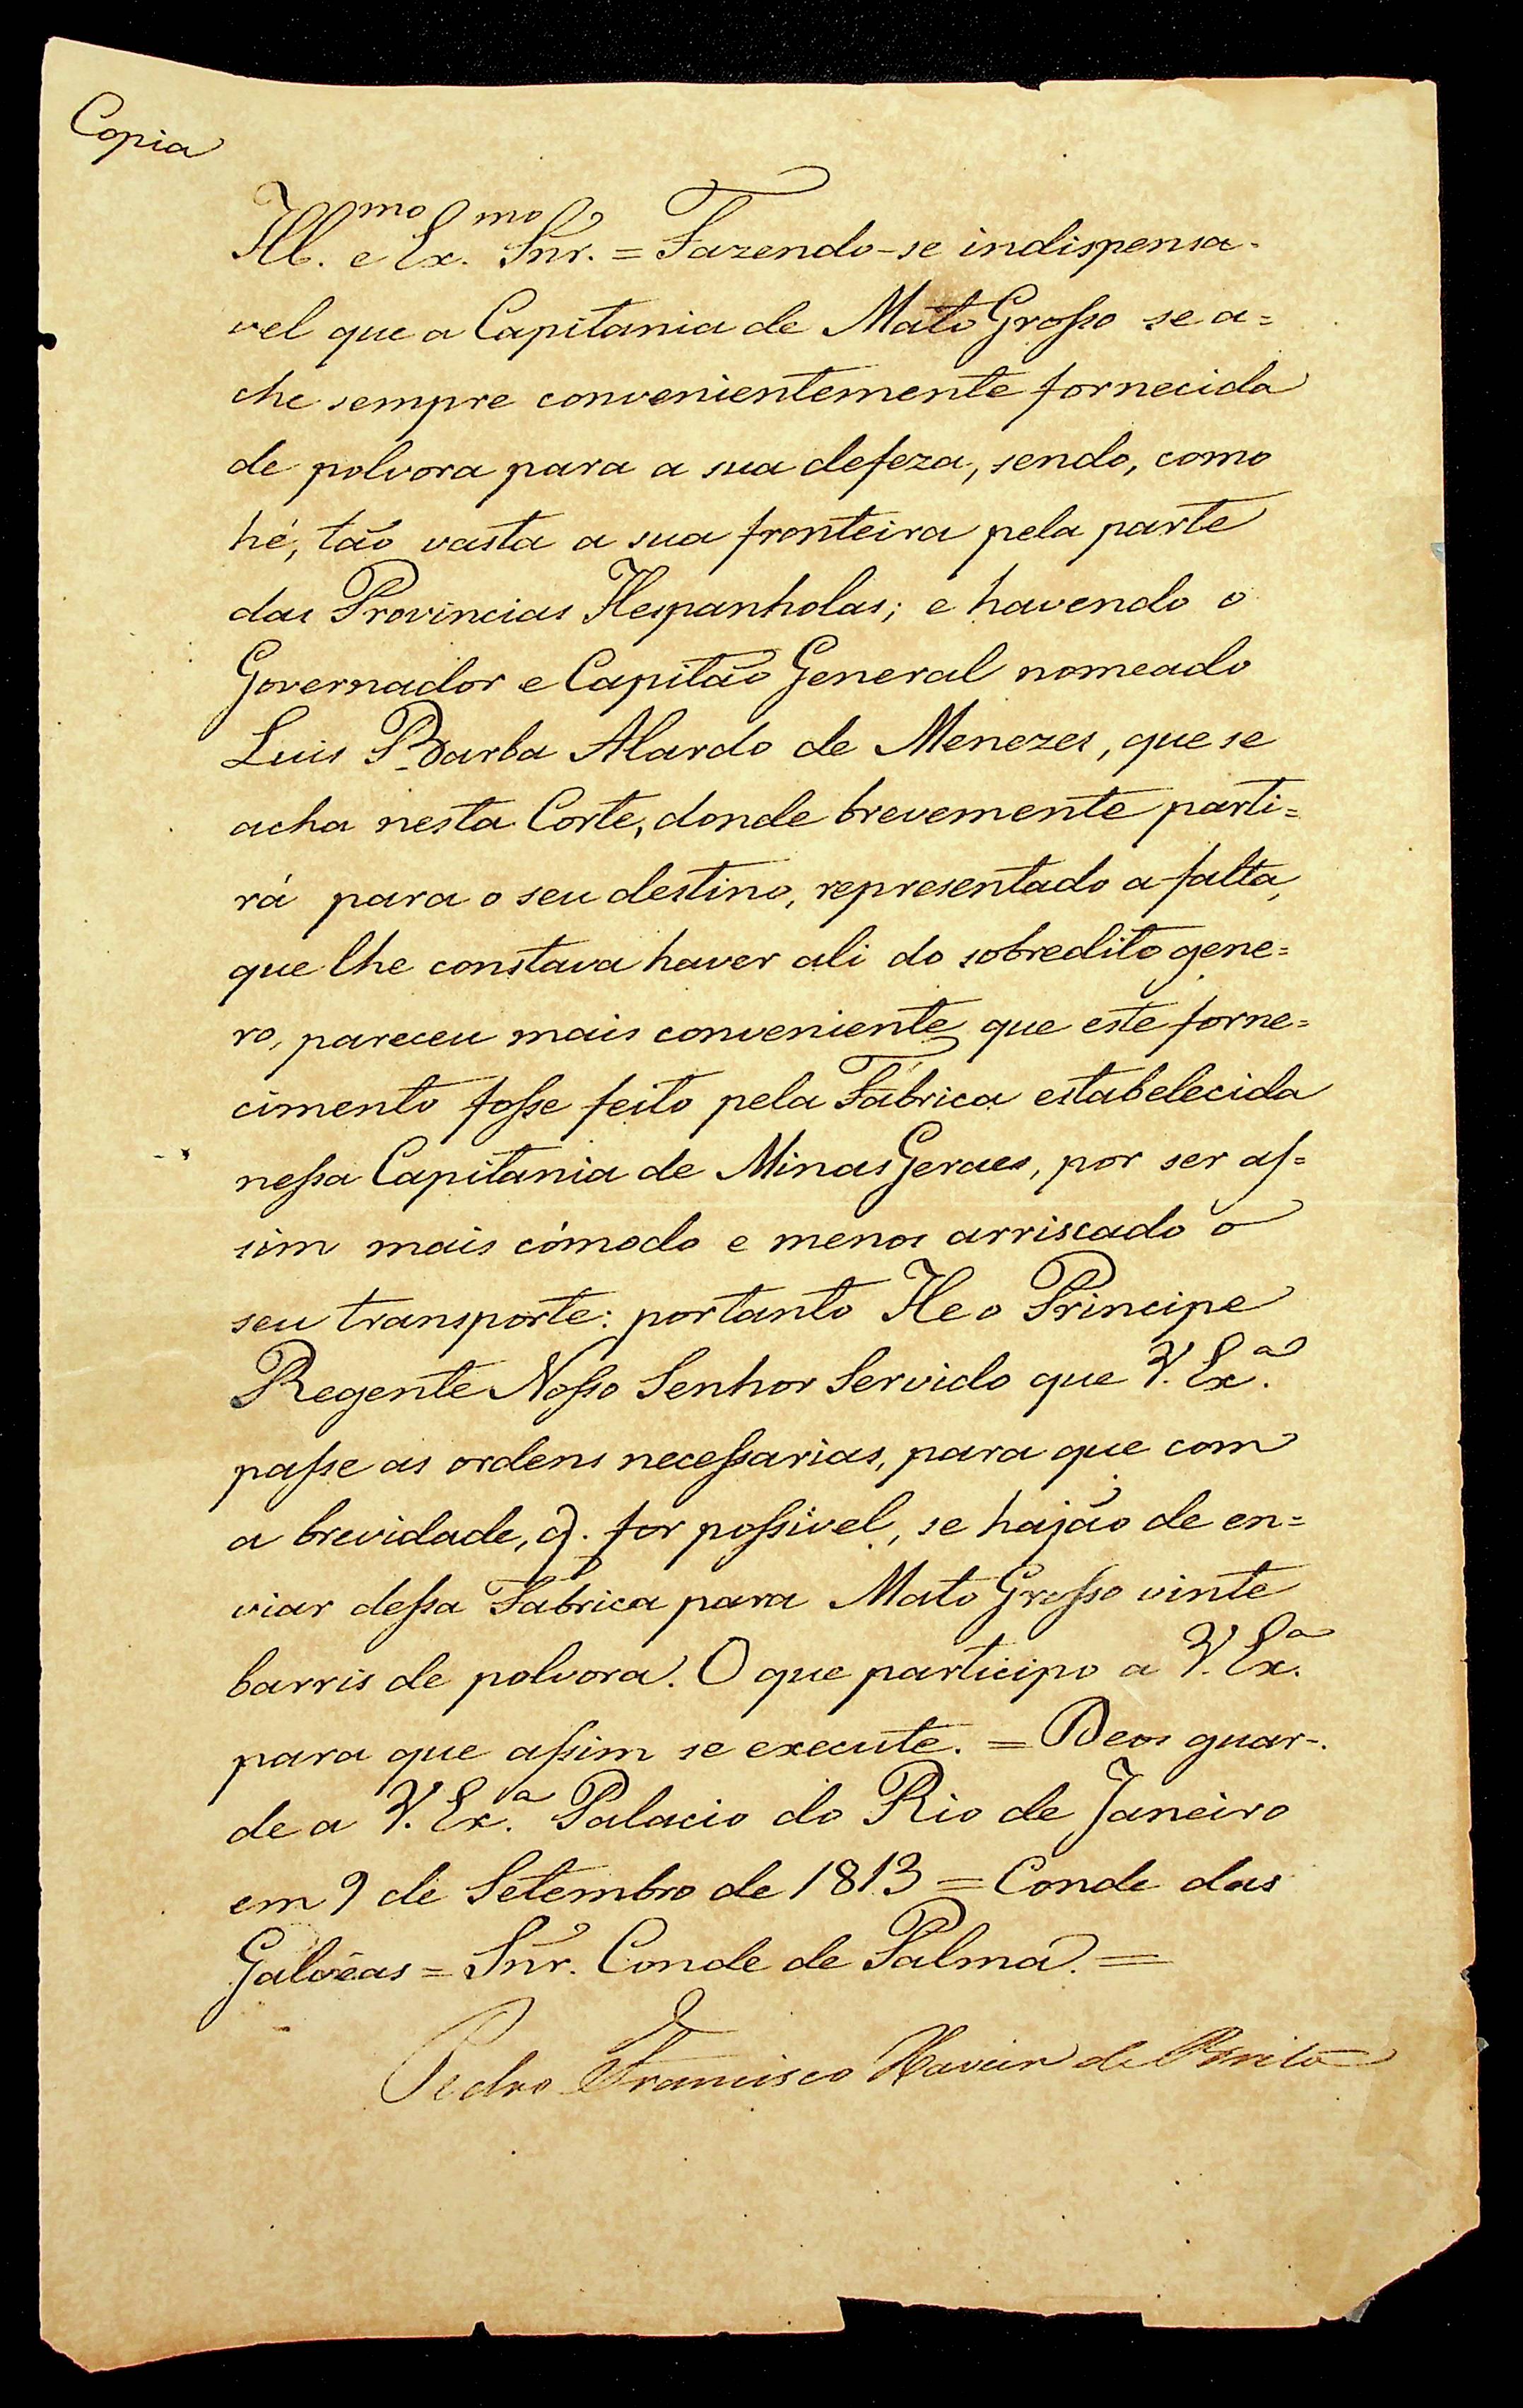 Copia
Ill.mo e Ex.mo Snr. = Fazendo-se indispensa-
vel que a Capitania de Mato Grosso se a=
che sempre convenientemente fornecida
de polvora para a sua defeza, sendo, como
hé, tão vasta a sua fronteira pela parte
das Provincias Hespanholas; e havendo o
Governador e Capitão General nomeado
Luis Barba Alardo de Menezes, que se
acha nesta Corte, donde brevemente parti=
rá para o seu destino, representado a falta,
que lhe constava haver ali do sobredito gene=
ro, pareceu mais conveniente que este forne=
cimento fosse feito pela Fabrica estabelecida
nessa Capitania de Minas Geraes, por ser as=
sim mais cómodo e menos arriscado o
seu transporte: portanto He o Principe
Regente Nosso Senhor Servido que V. Ex.a
passe as ordens necessarias, para que com
a brevidade, q. for possivel, se hajão de en=
viar dessa Fabrica para Mato Grosso vinte
barris de polvora. O que participo a V. Ex.a
para que assim se execute. = Deos guar-
de a V. Ex.a Palacio do Rio de Janeiro
em 9 de Setembro de 1813 = Conde das
Galvêas = Snr. Conde de Palma. =
Pedro Francisco Xavier de Brito